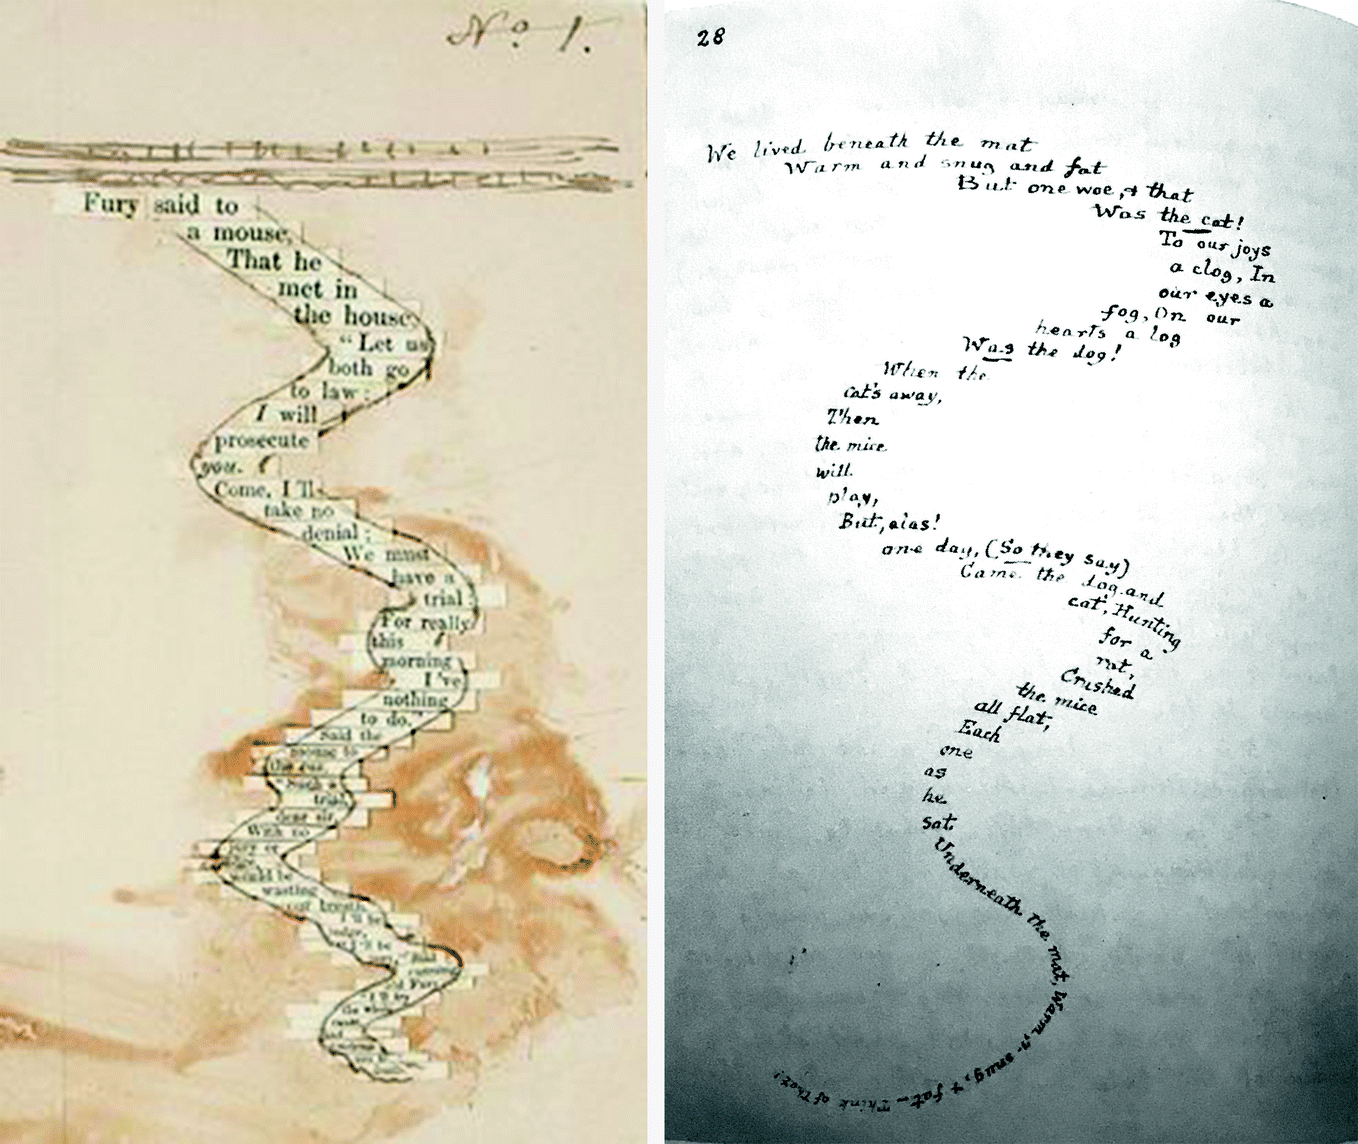 No. 1.
Fury said to
a mouse,
That he
met in
the house,
"Let us
both go
to law:
I will
prosecute
you.
Come, I'll
take no
denial;
We must
have a
trial:
For really
this
morning
I've
nothing
to do."
Said the
mouse to
the cur,
"Such a
trial,
dear sir,
With no
jury or
judge,
would be
wasting
our breath."
"I'll be
judge,
I'll be
jury," Said
cunning
old Fury:
"I'll try
the whole
cause,
28
We lived beneath the mat
Warm and snug and fat
But one woe, & that
Was the cat!
To our joys
a clog, In
our eyes a
fog, On our
hearts a log
Was the dog!
When the
cat's away,
Then
the mice
will
play,
But, alas!
one day, (So they say)
Came the dog and
cat, Hunting
for a
rat,
Crushed
the mice
all flat,
Each
one
as
he
sat
Underneath the mat, Warm, & snug, & fat— Think of that!